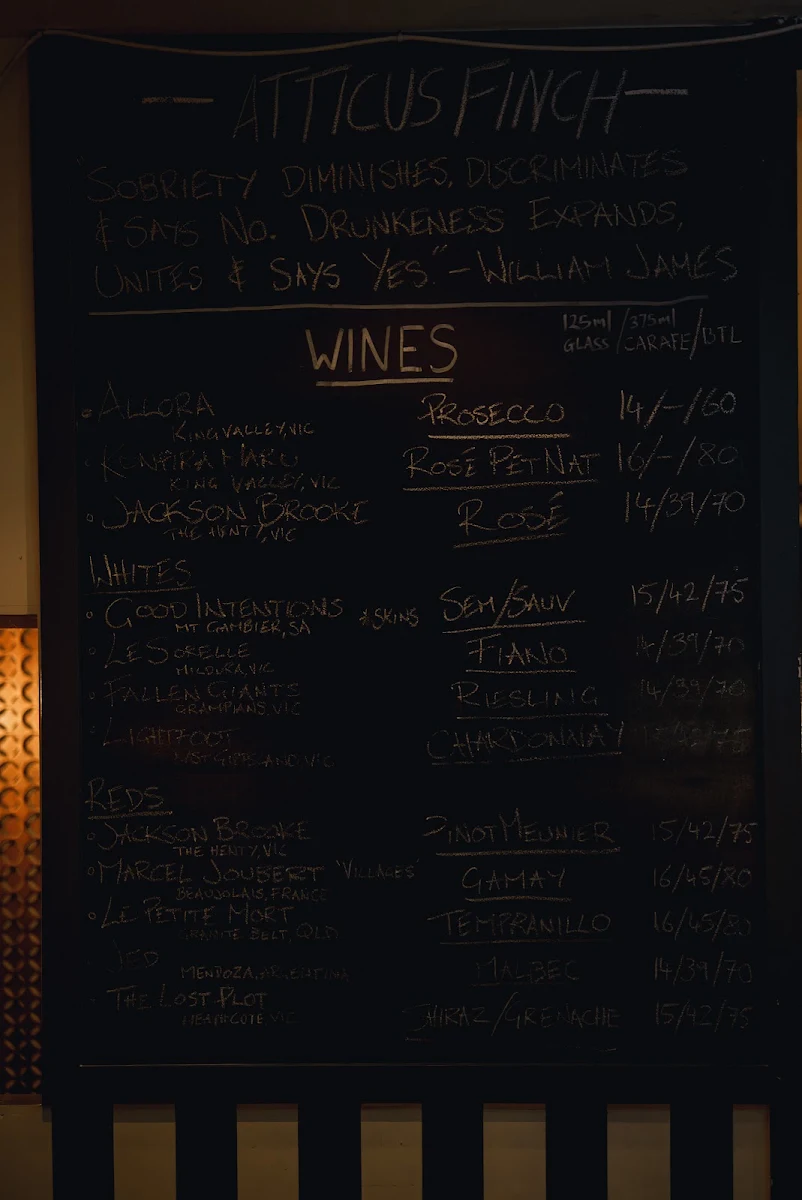 — ATTICUS FINCH —
"SOBRIETY DIMINISHES, DISCRIMINATES
& SAYS NO. DRUNKENESS EXPANDS,
UNITES & SAYS YES." – WILLIAM JAMES
WINES 125ml GLASS / 375ml CARAFE / BTL
ALLORA PROSECCO 14/–/60
KING VALLEY, VIC
ROSÉ PÉT NAT 16/–/80
KING VALLEY, VIC
JACKSON BROOKE ROSÉ 14/39/70
THE HENTY, VIC
WHITES
GOOD INTENTIONS *SKINS SEM/SAUV 15/42/75
MT GAMBIER, SA
LE SORELLE FIANO 14/39/70
MILDURA, VIC
FALLEN GIANTS RIESLING 14/39/70
GRAMPIANS, VIC
LIGHTFOOT CHARDONNAY
EAST GIPPSLAND, VIC
REDS
JACKSON BROOKE PINOT MEUNIER 15/42/75
THE HENTY, VIC
MARCEL JOUBERT 'VILLAGES' GAMAY 16/45/80
BEAUJOLAIS, FRANCE
LE PETITE MORT TEMPRANILLO 16/45/80
GRANITE BELT, QLD
JED MALBEC 14/39/70
MENDOZA, ARGENTINA
THE LOST PLOT SHIRAZ/GRENACHE 15/42/75
HEATHCOTE VIC